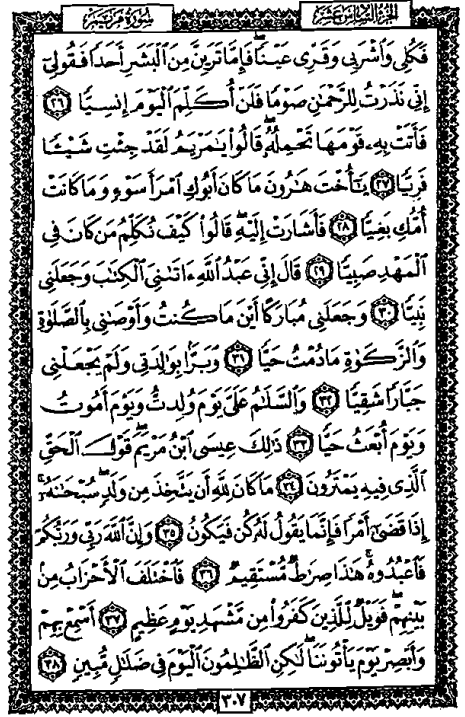 سُورَةُ مَرْيَم
الجُزْءُ السَّادِسَ عَشَر
فَكُلِي وَٱشْرَبِي وَقَرِّي عَيْنًاۖ فَإِمَّا تَرَيِنَّ مِنَ ٱلْبَشَرِ أَحَدًا فَقُولِيٓ
إِنِّي نَذَرْتُ لِلرَّحْمَٰنِ صَوْمًا فَلَنْ أُكَلِّمَ ٱلْيَوْمَ إِنسِيًّا ٢٦
فَأَتَتْ بِهِۦ قَوْمَهَا تَحْمِلُهُۥۖ قَالُوا۟ يَٰمَرْيَمُ لَقَدْ جِئْتِ شَيْـًٔا
فَرِيًّا ٢٧ يَٰٓأُخْتَ هَٰرُونَ مَا كَانَ أَبُوكِ ٱمْرَأَ سَوْءٍ وَمَا كَانَتْ
أُمُّكِ بَغِيًّا ٢٨ فَأَشَارَتْ إِلَيْهِۖ قَالُوا۟ كَيْفَ نُكَلِّمُ مَن كَانَ فِي
ٱلْمَهْدِ صَبِيًّا ٢٩ قَالَ إِنِّي عَبْدُ ٱللَّهِ ءَاتَىٰنِيَ ٱلْكِتَٰبَ وَجَعَلَنِي
نَبِيًّا ٣٠ وَجَعَلَنِي مُبَارَكًا أَيْنَ مَا كُنتُ وَأَوْصَٰنِي بِٱلصَّلَوٰةِ
وَٱلزَّكَوٰةِ مَا دُمْتُ حَيًّا ٣١ وَبَرًّۢا بِوَٰلِدَتِي وَلَمْ يَجْعَلْنِي
جَبَّارًا شَقِيًّا ٣٢ وَٱلسَّلَٰمُ عَلَيَّ يَوْمَ وُلِدتُّ وَيَوْمَ أَمُوتُ
وَيَوْمَ أُبْعَثُ حَيًّا ٣٣ ذَٰلِكَ عِيسَى ٱبْنُ مَرْيَمَۖ قَوْلَ ٱلْحَقِّ
ٱلَّذِي فِيهِ يَمْتَرُونَ ٣٤ مَا كَانَ لِلَّهِ أَن يَتَّخِذَ مِن وَلَدٍۖ سُبْحَٰنَهُۥٓۚ
إِذَا قَضَىٰٓ أَمْرًا فَإِنَّمَا يَقُولُ لَهُۥ كُن فَيَكُونُ ٣٥ وَإِنَّ ٱللَّهَ رَبِّي وَرَبُّكُمْ
فَٱعْبُدُوهُۚ هَٰذَا صِرَٰطٌ مُّسْتَقِيمٌ ٣٦ فَٱخْتَلَفَ ٱلْأَحْزَابُ مِنۢ
بَيْنِهِمْۖ فَوَيْلٌ لِّلَّذِينَ كَفَرُوا۟ مِن مَّشْهَدِ يَوْمٍ عَظِيمٍ ٣٧ أَسْمِعْ بِهِمْ
وَأَبْصِرْ يَوْمَ يَأْتُونَنَاۖ لَٰكِنِ ٱلظَّٰلِمُونَ ٱلْيَوْمَ فِي ضَلَٰلٍ مُّبِينٍ ٣٨
٣٠٧